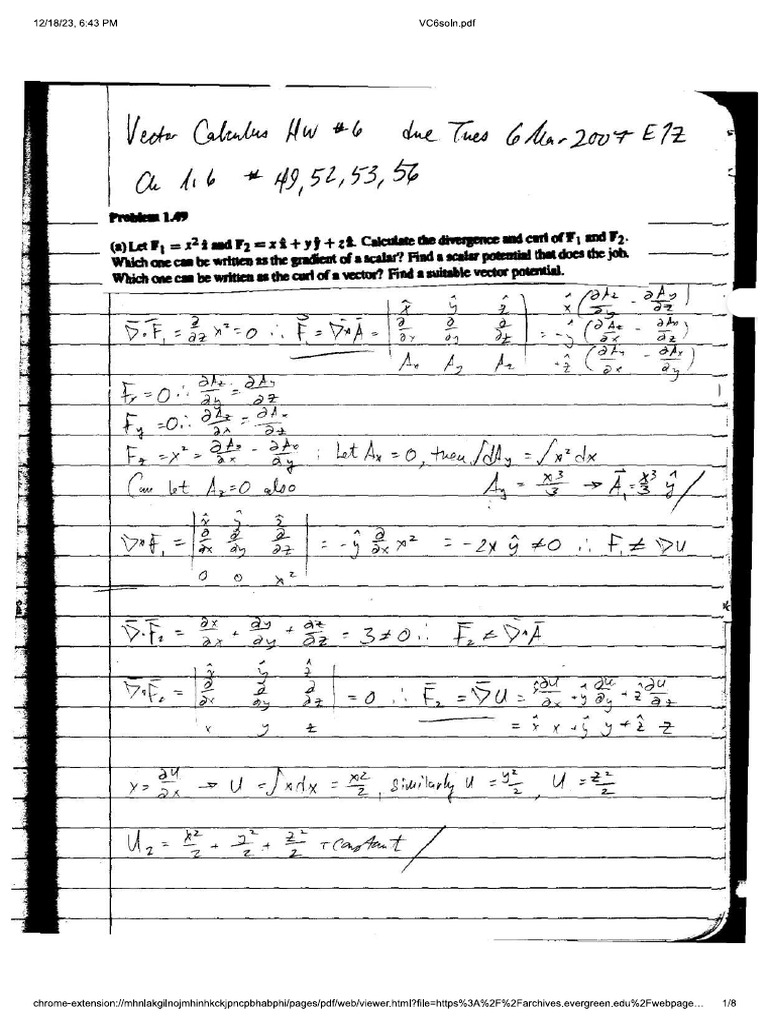 12/18/23, 6:43 PM VC6soln.pdf
Vector Calculus HW #6 due Tues 6 Mar 2007 EJZ
Ch 1.6 # 49, 52, 53, 56
Problem 1.49
(a) Let F₁ = x² ẑ and F₂ = x x̂ + y ŷ + z ẑ. Calculate the divergence and curl of F₁ and F₂.
Which one can be written as the gradient of a scalar? Find a scalar potential that does the job.
Which one can be written as the curl of a vector? Find a suitable vector potential.
∇·F₁ = ∂/∂z x² = 0 ∴ F₁ = ∇×A = | x̂ ŷ ẑ ; ∂/∂x ∂/∂y ∂/∂z ; Aₓ A_y A_z | = x̂ (∂A_z/∂y - ∂A_y/∂z) -ŷ (∂A_z/∂x - ∂Aₓ/∂z) +ẑ (∂A_y/∂x - ∂Aₓ/∂y)
Fₓ = 0 ∴ ∂A_z/∂y = ∂A_y/∂z
F_y = 0 ∴ ∂A_z/∂x = ∂Aₓ/∂z
F_z = x² = ∂A_y/∂x - ∂Aₓ/∂y ; Let Aₓ = 0, then ∫dA_y = ∫x² dx
Can let A_z = 0 also A_y = x³/3 → A₁ = x³/3 ŷ /
∇×F₁ = | x̂ ŷ ẑ ; ∂/∂x ∂/∂y ∂/∂z ; 0 0 x² | = -ŷ ∂/∂x x² = -2x ŷ ≠ 0 ∴ F₁ ≠ ∇U
∇·F₂ = ∂x/∂x + ∂y/∂y + ∂z/∂z = 3 ≠ 0 ∴ F₂ ≠ ∇×A
∇×F₂ = | x̂ ŷ ẑ ; ∂/∂x ∂/∂y ∂/∂z ; x y z | = 0 ∴ F₂ = ∇U = x̂ ∂U/∂x + ŷ ∂U/∂y + ẑ ∂U/∂z
= x̂ x + ŷ y + ẑ z
x = ∂U/∂x → U = ∫x dx = x²/2, similarly U = y²/2, U = z²/2
U₂ = x²/2 + y²/2 + z²/2 + constant /
chrome-extension://mhnlakgilnojmhinhkckjpncpbhabphi/pages/pdf/web/viewer.html?file=https%3A%2F%2Farchives.evergreen.edu%2Fwebpage… 1/8